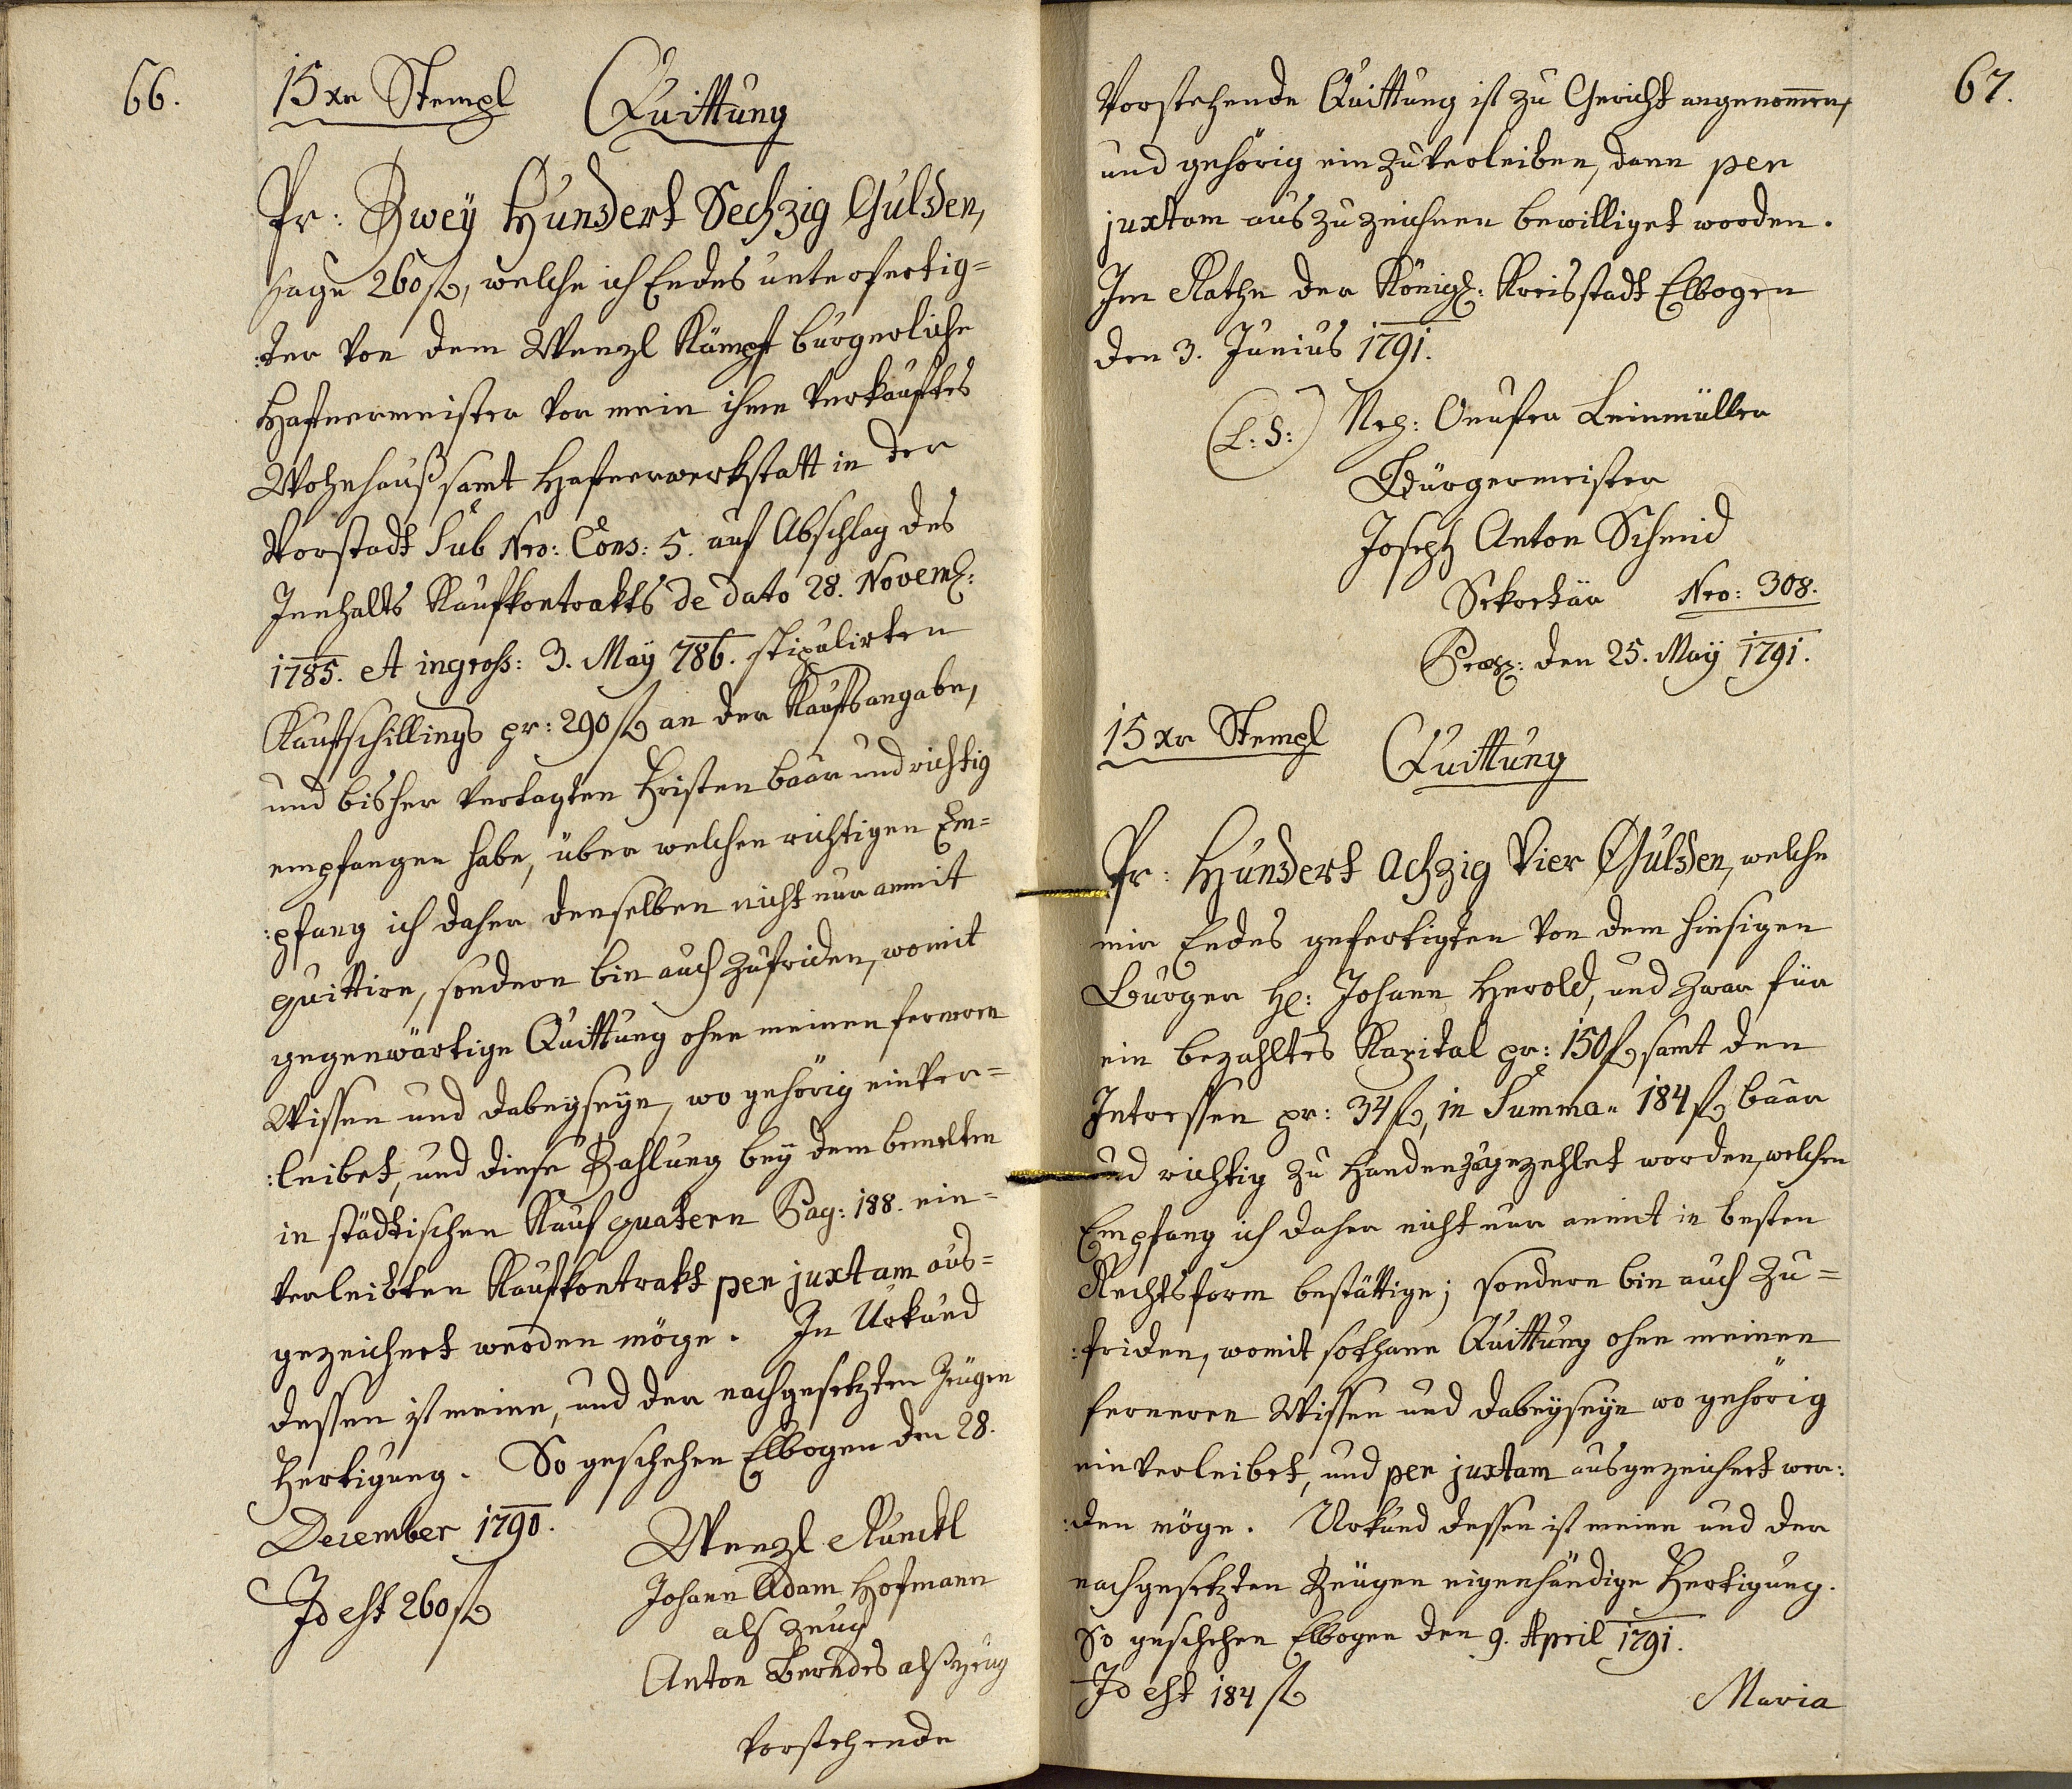 66.
15 xr Stempl Quittung
Pr: Zwey Hundert Sechzig Gulden,
sage 260 fl, welche ich Endes unterfertig=
:ter von dem Wenzl Kämpf burgerliche
Hafnermeister vor mein ihme verkauftes
Wohnhauß samt Hafnerwerkstatt in der
Vorstadt Sub Nro: Cons: 5. auf Abschlag des
Innhalts Kaufkontrakts de dato 28. Novem:
1785. et ingross: 3. May 786. stipulirten
Kaufschillings pr: 290 fl an der Kaufsangabe,
und bisher vertagten Fristen baar und richtig
empfangen habe, über welchen richtigen Em=
:pfang ich daher denselben nicht nur anmit
quittire, sondern bin auch zufriden, womit
gegenwärtige Quittung ohne meinen fernern
Wissen und dabeyseyn, wo gehörig einver=
:leibet, und diese Zahlung bey dem bemelten
in städtischen Kauf quatern Pag: 188. ein=
verleibten Kaufkontrakt per juxtam aus=
gezeichnet werden möge. In Urkund
dessen ist meine, und der nachgesetzten Zeugen
Fertigung. So geschehen Elbogen den 28.
December 1790.
Wenzl Runckl
Id est 260 fl
Johann Adam Hofmann
als Zeug
Anton Berndes alß Zeug
Vorstehende
67.
Vorstehende Quittung ist zu Gericht angenommen,
und gehörig einzuverleiben, dann per
juxtam auszuzeichnen bewilliget worden.
Im Rathe der Königl: Kreisstadt Elbogen
den 3. Junius 1791.
(L: S:) Nep: Onufer Leinmüller
Bürgermeister
Joseph Anton Schmid
Sekretär Nro: 308.
Praes: den 25. May 1791.
15 xr Stempl Quittung
Pr: Hundert Achzig Vier Gulden, welche
mir Endes gefertigten von dem hiesigen
Burger H: Johann Herold, und zwar für
ein bezahltes Kapital pr: 150 fl samt den
Intressen pr: 34 fl, in Summa 184 fl baar
und richtig zu Handen zugezehlet worden, welchen
Empfang ich daher nicht nur anmit in besten
Rechtsform bestättige; sondern bin auch zu=
:friden, womit sothane Quittung ohne meinen
ferneren Wissen und dabeyseyn wo gehörig
einverleibet, und per juxtam ausgezeichnet wer:
:den möge. Urkund dessen ist meine und der
nachgesetzten Zeugen eigenhändige Fertigung.
So geschehen Elbogen den 9. April 1791.
Id est 184 fl
Maria